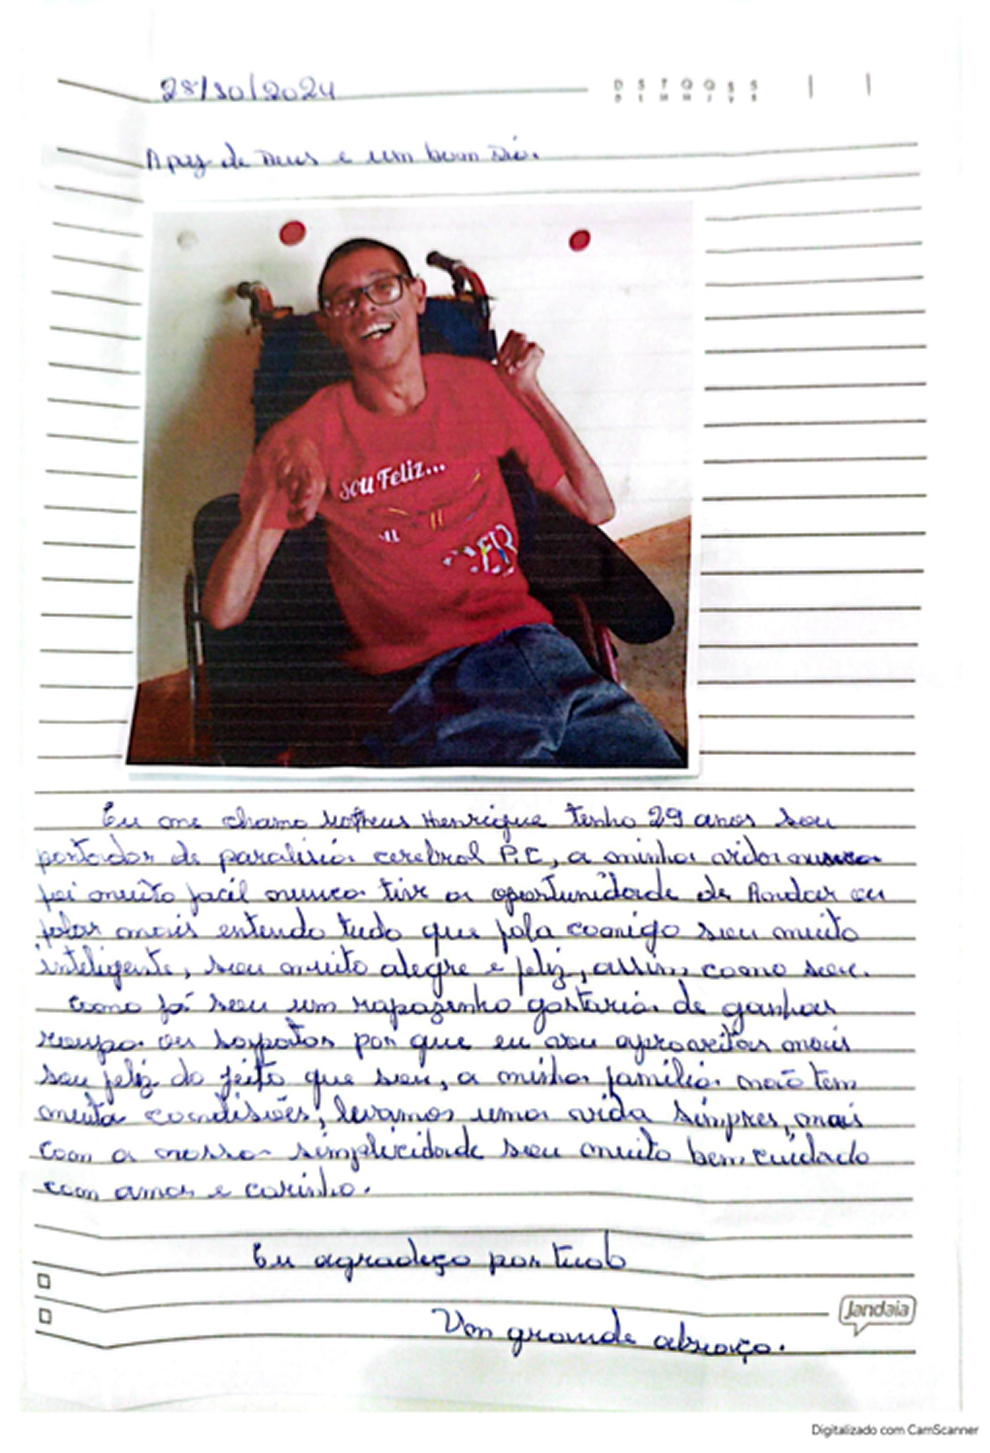 28/10/2024
D S T Q Q S S
D L M M J V S
A paz de Deus e um bom Dia.
Sou Feliz...
Eu me chamo Matheus Henrique tenho 29 anos sou
portador de paralisia cerebral P.C, a minha vida nunca
foi muito facil nunca tive a oportunidade de Andar ou
falar mais entendo tudo que fala comigo sou muito
inteligente, sou muito alegre e feliz, assim como sou.
Como já sou um rapazinho gostaria de ganhar
roupa ou sapatos por que eu vou aproveitar mais
sou feliz do jeito que sou, a minha familia não tem
muita condisiões, levamos uma vida simpres, mais
com a nossa simplicidade sou muito bem cuidado
com amor e carinho.
Eu agradeço por tudo
Um grande abraço.
Jandaia
Digitalizado com CamScanner